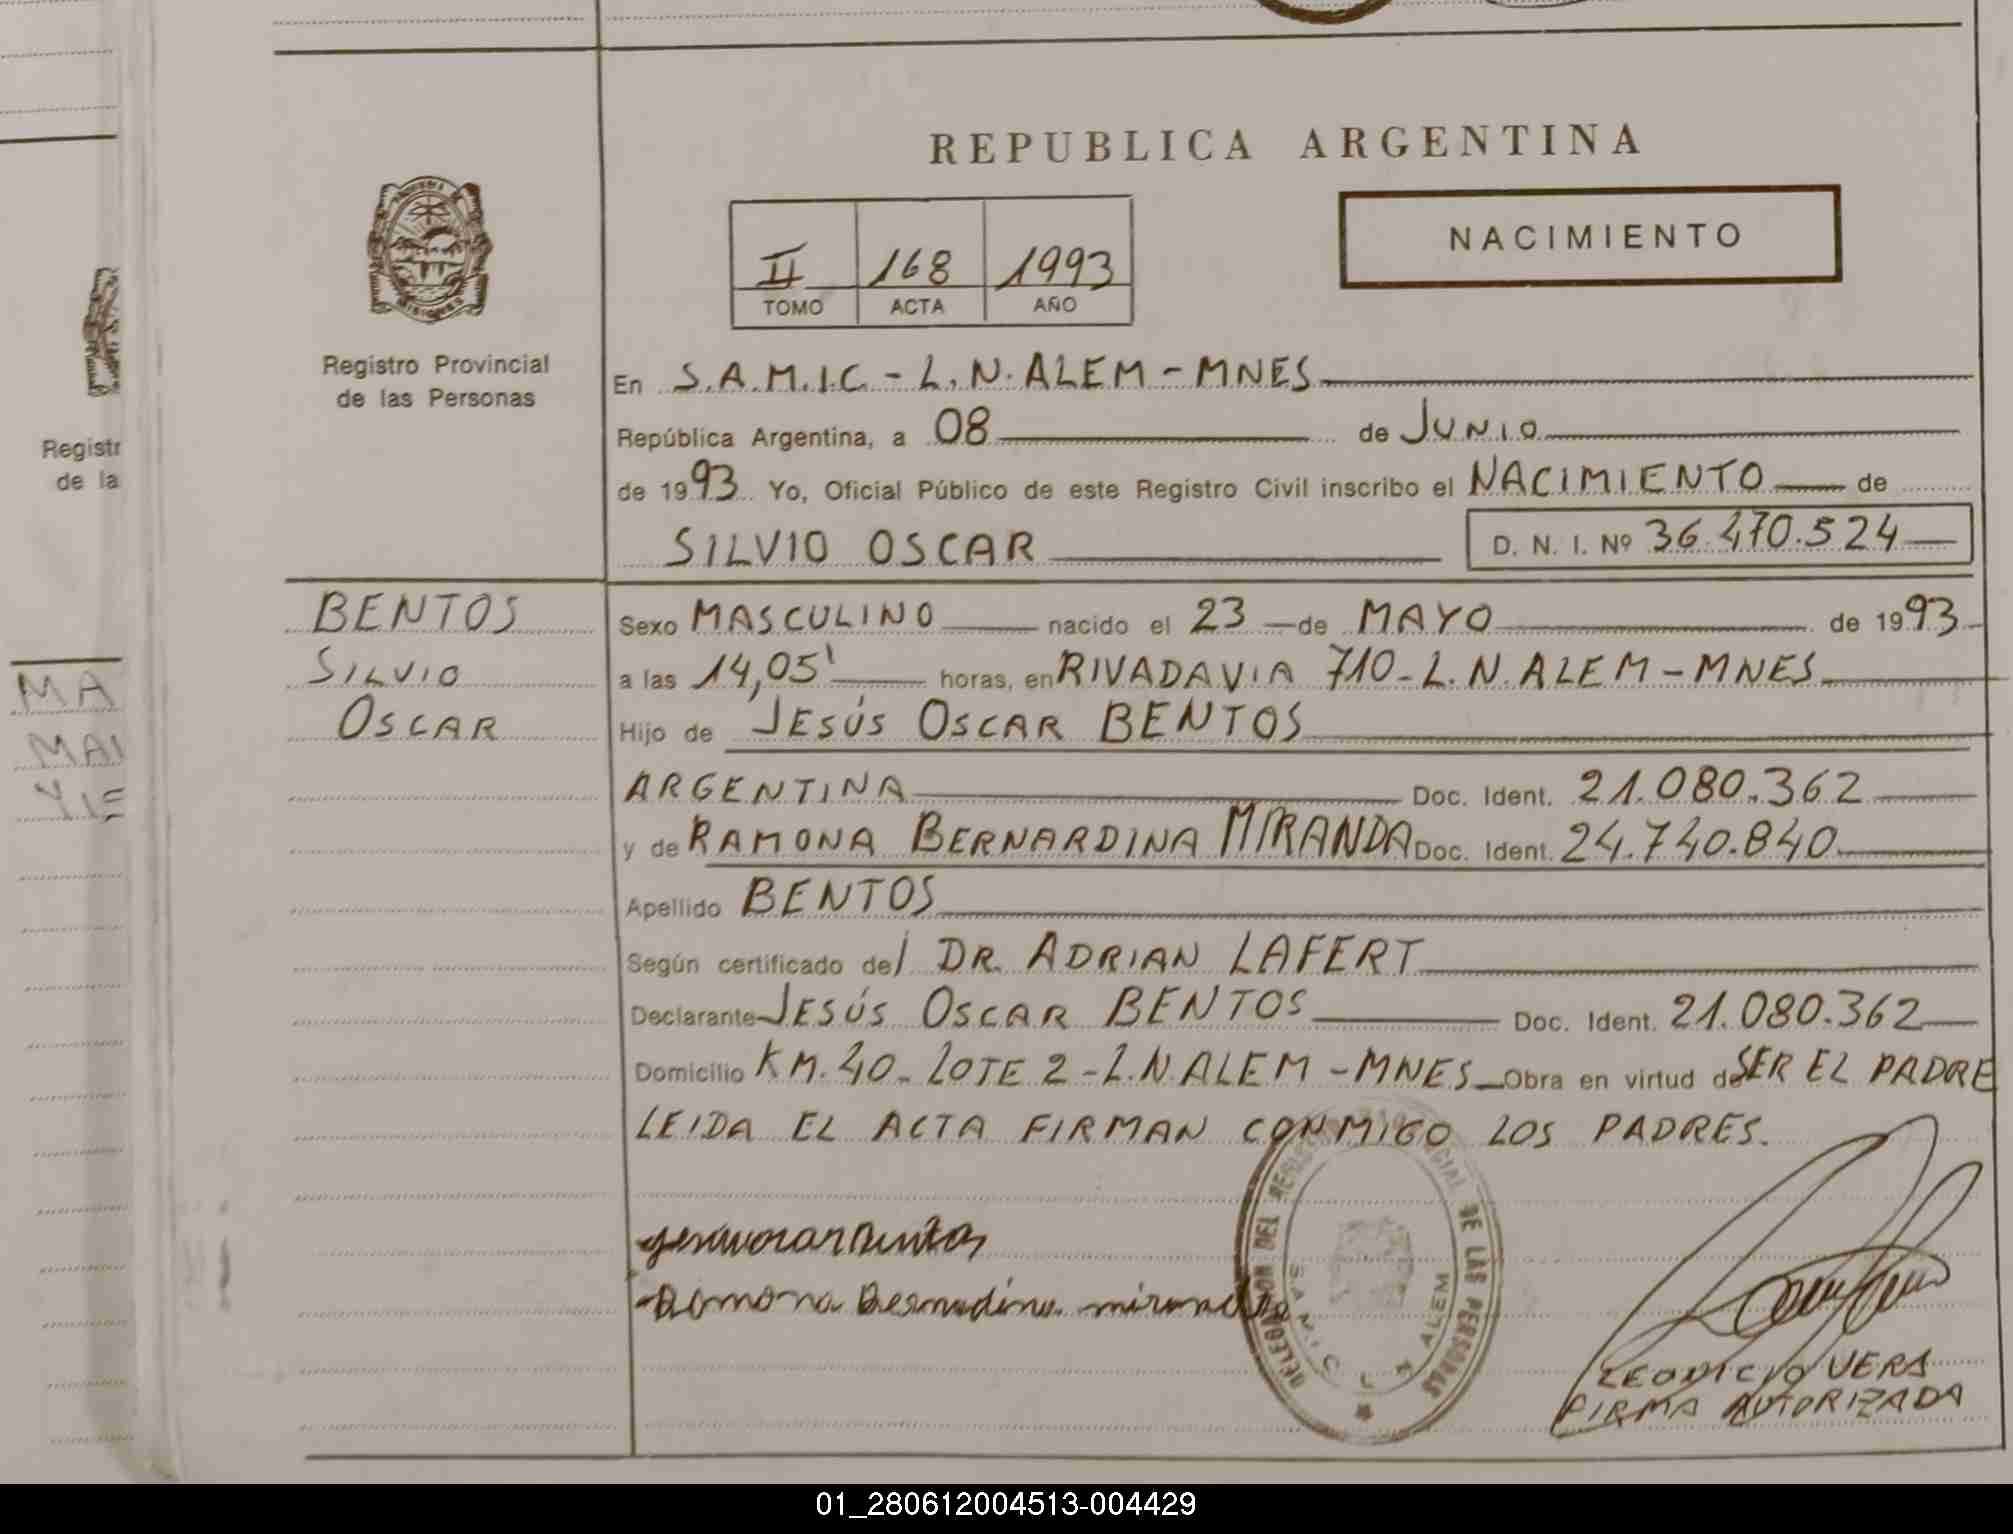 REPUBLICA ARGENTINA
NACIMIENTO
II 168 1993
TOMO ACTA AÑO
Registro Provincial
de las Personas
En S.A.M.I.C. - L.N. ALEM - MNES
República Argentina, a 08 de JUNIO
de 1993 Yo, Oficial Público de este Registro Civil inscribo el NACIMIENTO de
SILVIO OSCAR D. N. I. Nº 36.470.524
BENTOS
SILVIO
OSCAR
Sexo MASCULINO nacido el 23 de MAYO de 1993
a las 14,05' horas, en RIVADAVIA 710 - L.N. ALEM - MNES
Hijo de JESÚS OSCAR BENTOS
ARGENTINA Doc. Ident. 21.080.362
y de RAMONA BERNARDINA MIRANDA Doc. Ident. 24.740.840
Apellido BENTOS
Según certificado del DR. ADRIAN LAFERT
Declarante JESÚS OSCAR BENTOS Doc. Ident. 21.080.362
Domicilio KM. 40 - LOTE 2 - L.N. ALEM - MNES Obra en virtud de SER EL PADRE
LEIDA EL ACTA FIRMAN CONMIGO LOS PADRES.
Ramona Bernardina miranda
DELEGACION DEL REGISTRO PROVINCIAL DE LAS PERSONAS
S.A.M.I.C. L. N. ALEM
LEODICIO VERA
FIRMA AUTORIZADA
Registr
de la
MA
MAI
YIE
01_280612004513-004429